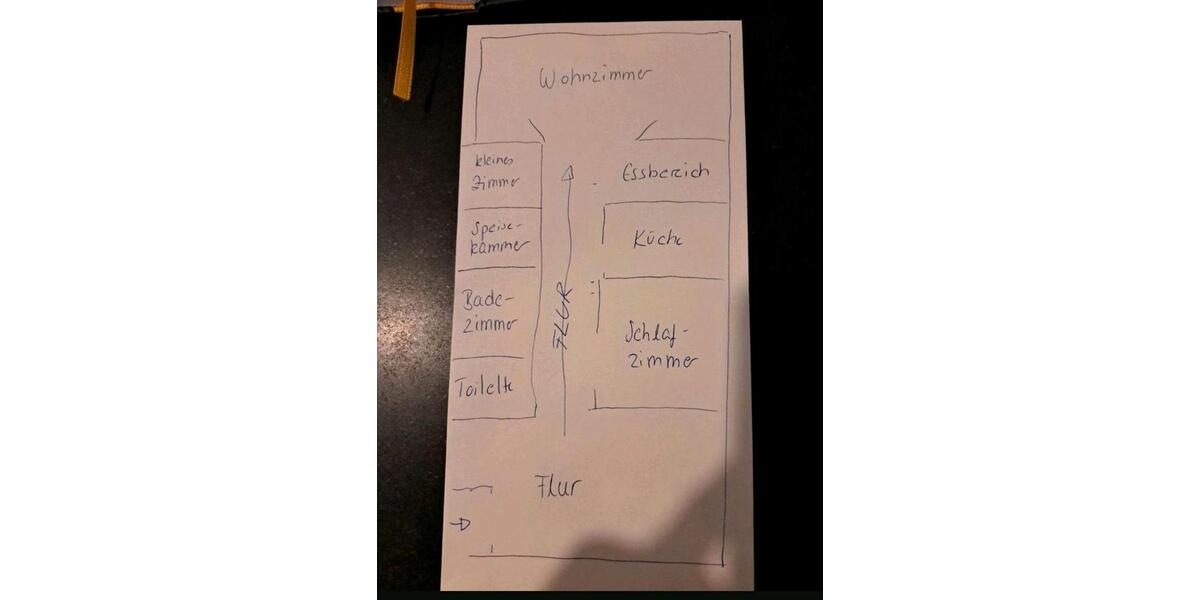 Wohnzimmer
kleines
Zimmer
Essbereich
Speise-
kammer
Küche
Bade-
zimmer
FLUR
Schlaf-
zimmer
Toilette
Flur